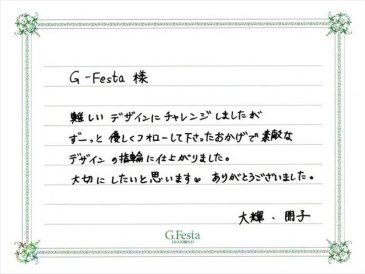 G-Festa 様
難しい デザインにチャレンジしましたが
ずーっと 優しくフォローして下さったおかげで素敵な
デザイン の指輪に仕上がりました。
大切にしたいと思います♥ ありがとうございました。
大輝、朋子
G.Festa
DIAMOND